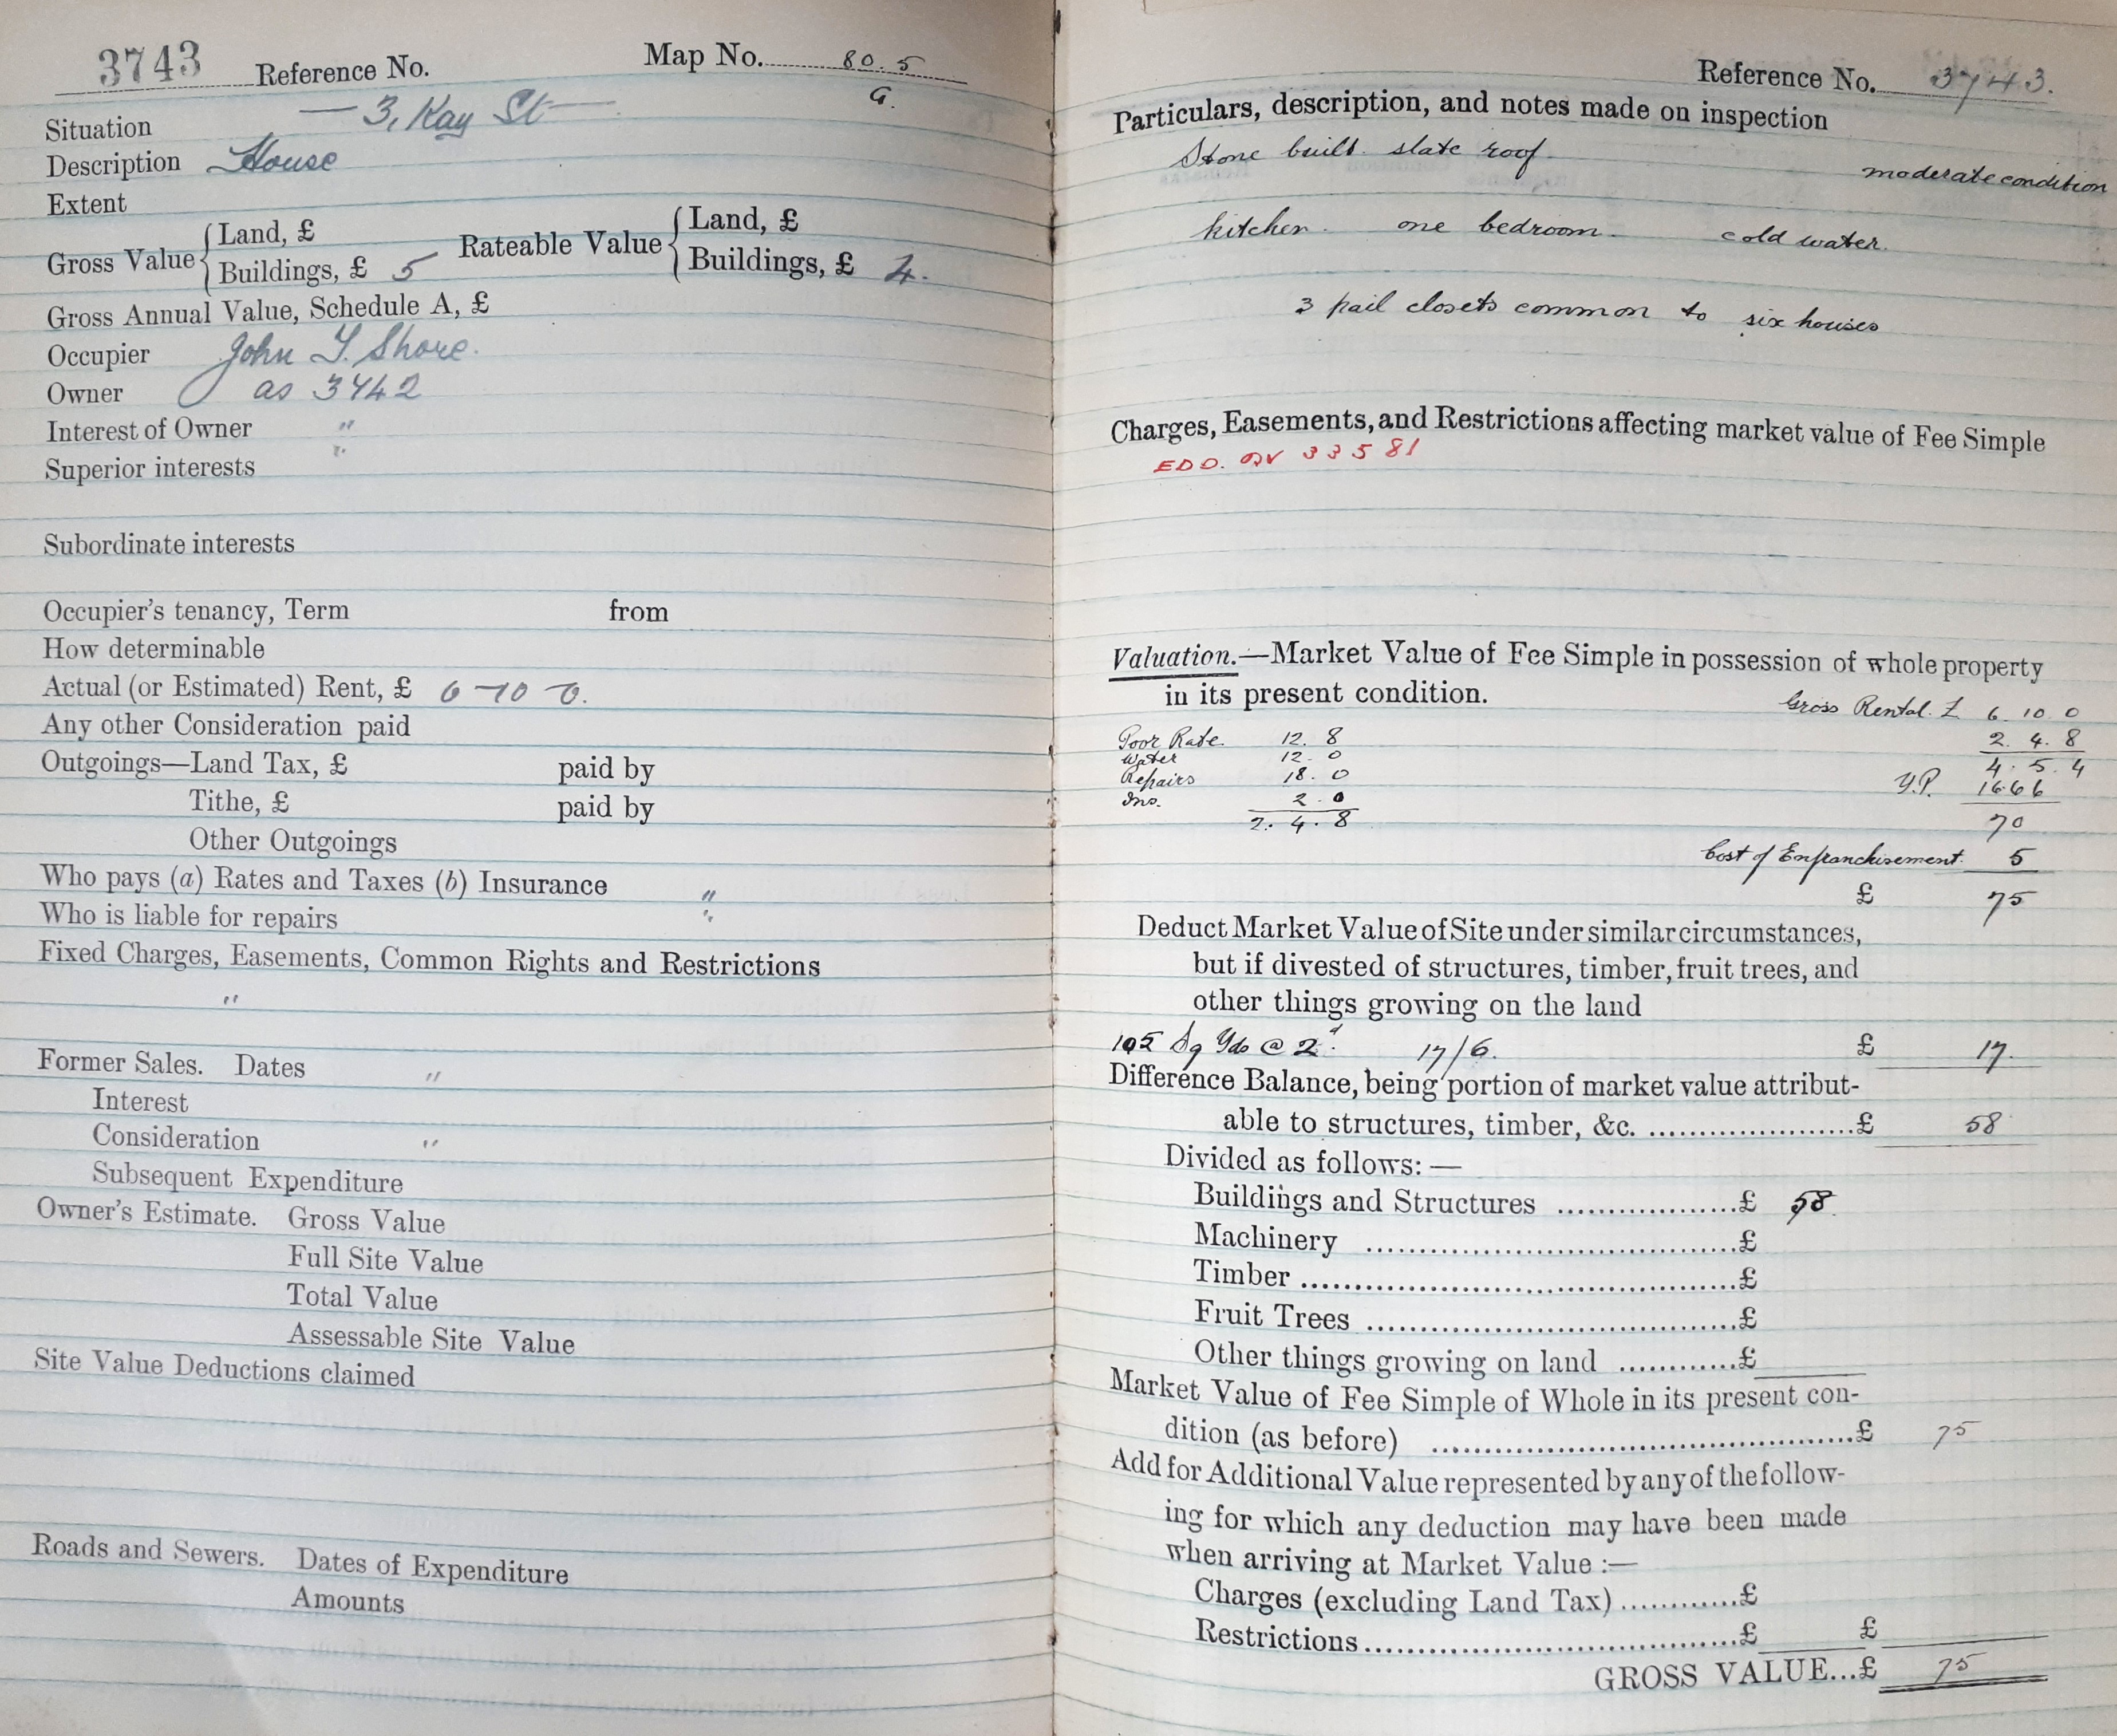 3743 Reference No. Map No. 80.5
G.
Situation — 3, Kay St —
Description House
Extent
Gross Value { Land, £
Buildings, £ 5 Rateable Value { Land, £
Buildings, £ 4.
Gross Annual Value, Schedule A, £
Occupier John T. Shore.
Owner as 3742
Interest of Owner "
Superior interests "
Subordinate interests
Occupier's tenancy, Term from
How determinable
Actual (or Estimated) Rent, £ 6-10-0.
Any other Consideration paid
Outgoings—Land Tax, £ paid by
Tithe, £ paid by
Other Outgoings
Who pays (a) Rates and Taxes (b) Insurance "
Who is liable for repairs "
Fixed Charges, Easements, Common Rights and Restrictions
"
Former Sales. Dates "
Interest
Consideration "
Subsequent Expenditure
Owner's Estimate. Gross Value
Full Site Value
Total Value
Assessable Site Value
Site Value Deductions claimed
Roads and Sewers. Dates of Expenditure
Amounts
Reference No. 3743.
Particulars, description, and notes made on inspection
Stone built slate roof.
moderate condition
kitchen. one bedroom. cold water.
3 pail closets common to six houses
Charges, Easements, and Restrictions affecting market value of Fee Simple
EDD. DV 33581
Valuation.—Market Value of Fee Simple in possession of whole property
in its present condition.
Gross Rental. £ 6. 10. 0
Poor Rate. 12. 8
2. 4. 8
Water 12. 0
4. 5. 4
Repairs 18. 0
Y.P. 16.66
Ins. 2. 0
2. 4. 8
70
Cost of Enfranchisement. 5
£ 75
Deduct Market Value of Site under similar circumstances,
but if divested of structures, timber, fruit trees, and
other things growing on the land
105 Sq Yds @ 2d. 17/6. £ 17.
Difference Balance, being portion of market value attribut-
able to structures, timber, &c. ......................£ 58
Divided as follows: —
Buildings and Structures ...................£ 58.
Machinery .......................................£
Timber .............................................£
Fruit Trees .......................................£
Other things growing on land ............£
Market Value of Fee Simple of Whole in its present con-
dition (as before) ............................................£ 75
Add for Additional Value represented by any of the follow-
ing for which any deduction may have been made
when arriving at Market Value :—
Charges (excluding Land Tax) ............£
Restrictions.......................................£ £
GROSS VALUE...£ 75